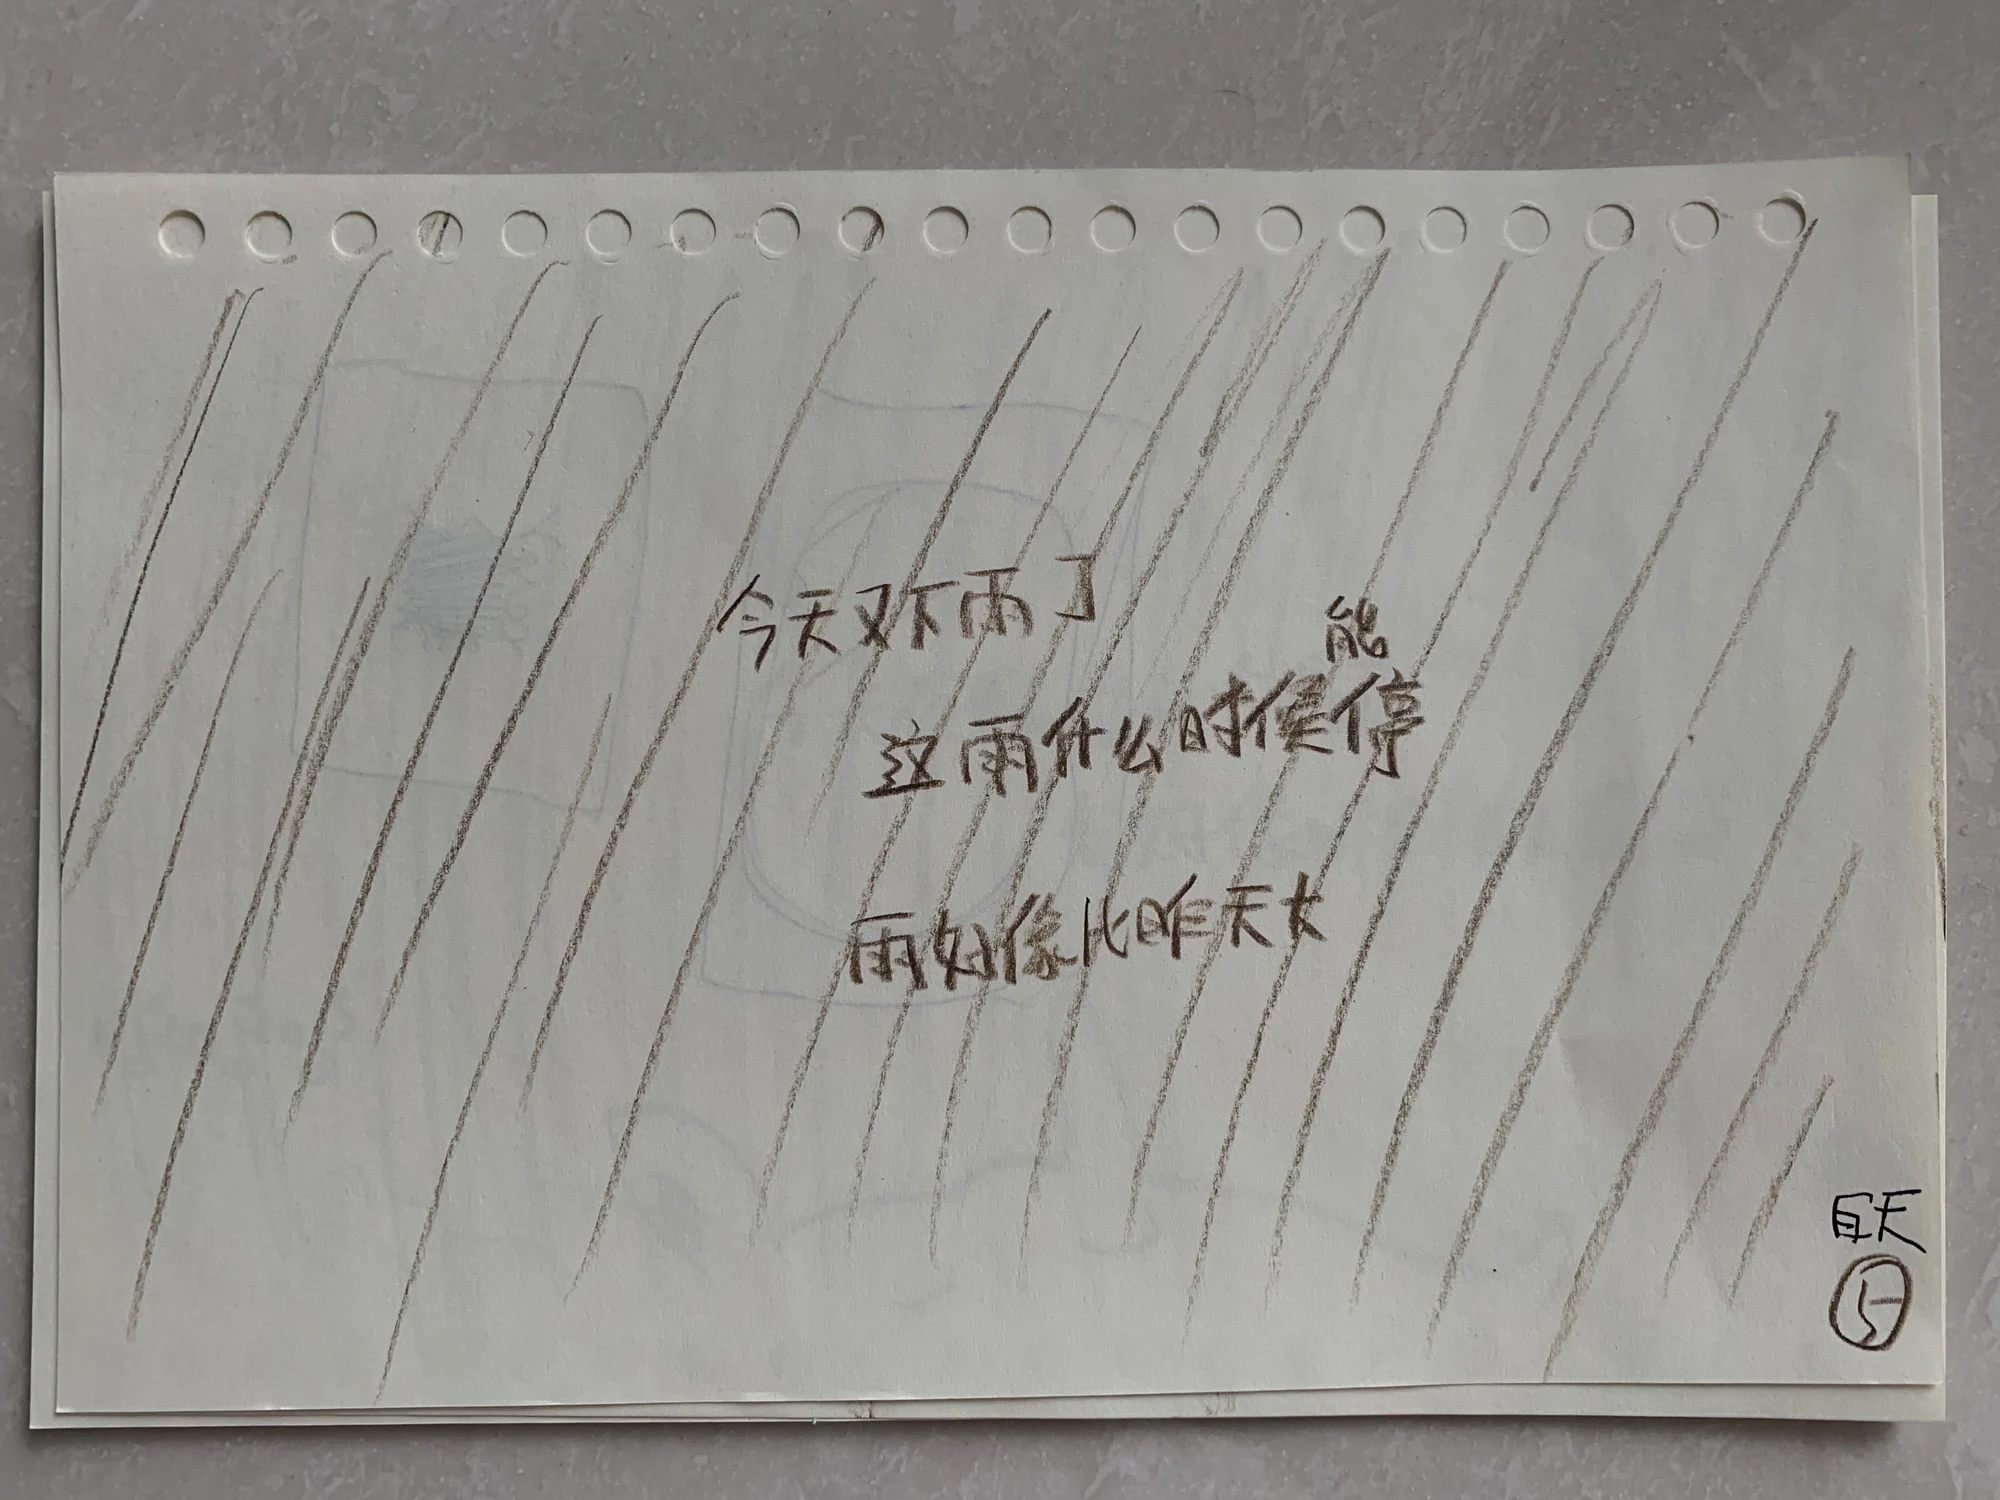 今天又下雨了
能
这雨什么时候停
雨好像比昨天大
5